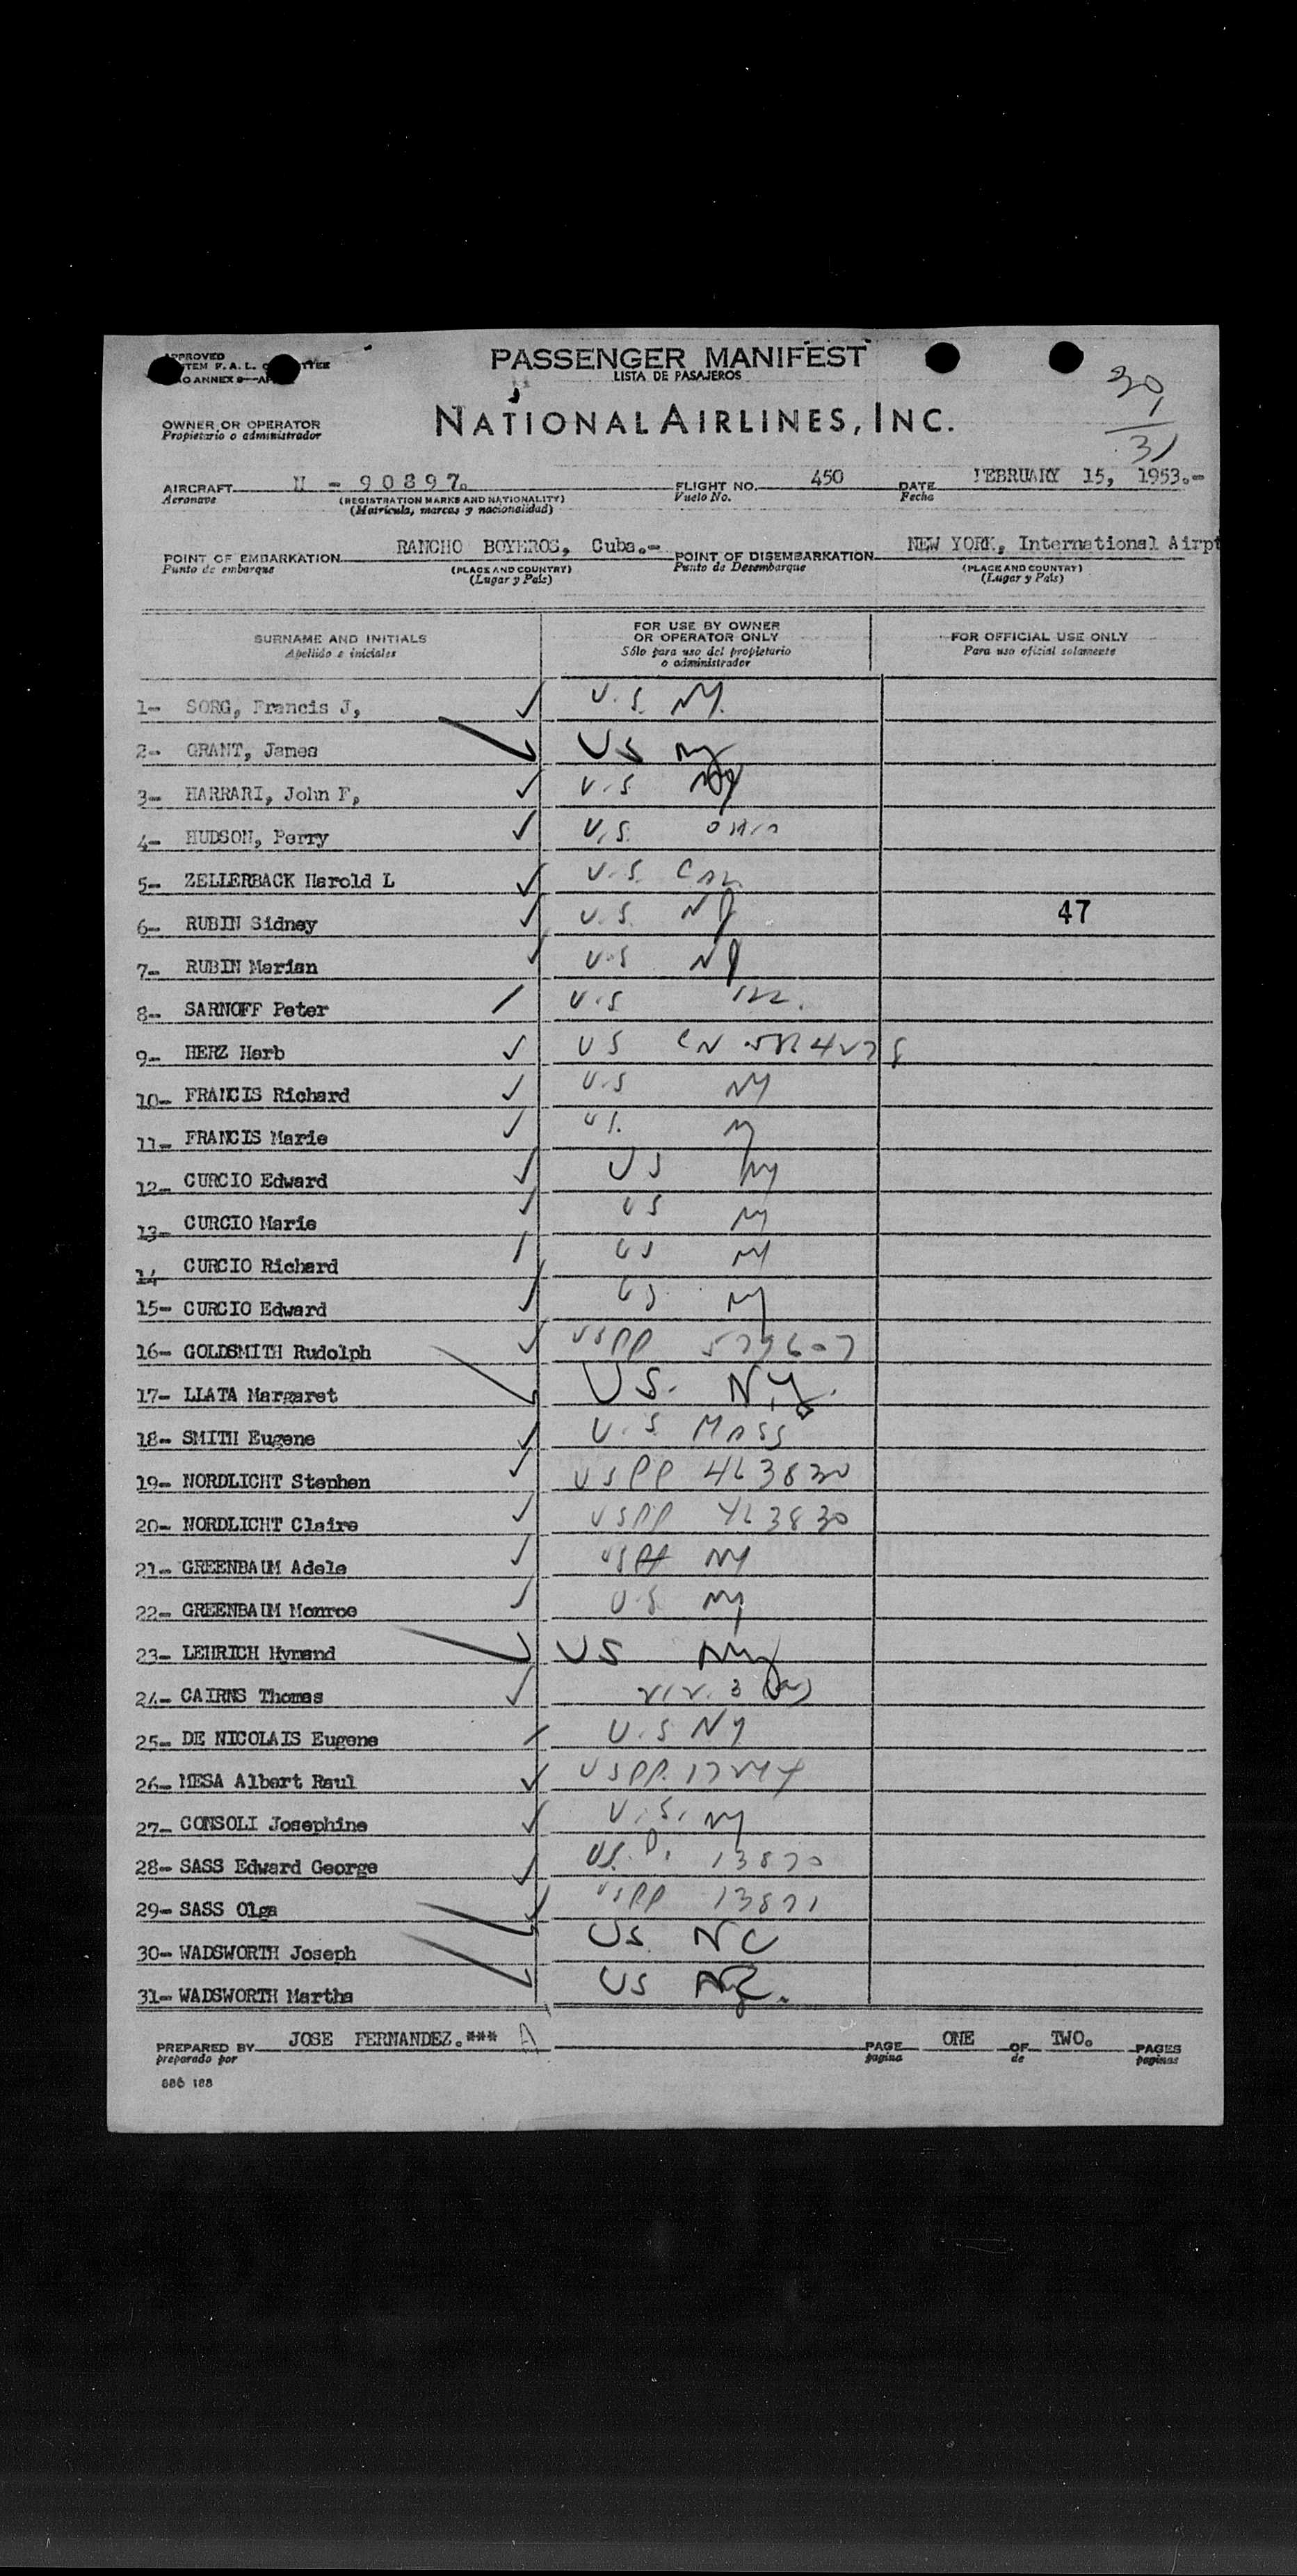 APPROVED
PASSENGER MANIFEST
LISTA DE PASAJEROS
30
1
31
NATIONAL AIRLINES, INC.
OWNER OR OPERATOR
Propietario o administrador
AIRCRAFT N - 90897. FLIGHT NO. 450 DATE FEBRUARY 15, 1953.-
Aeronave (REGISTRATION MARKS AND NATIONALITY) Vuelo No. Fecha
(Matrícula, marcas y nacionalidad)
POINT OF EMBARKATION RANCHO BOYEROS, Cuba.- POINT OF DISEMBARKATION NEW YORK, International Airpt
Punto de embarque (PLACE AND COUNTRY) Punto de Desembarque (PLACE AND COUNTRY)
(Lugar y País) (Lugar y País)
SURNAME AND INITIALS
Apellido e iniciales
FOR USE BY OWNER
OR OPERATOR ONLY
Sólo para uso del propietario
o administrador
FOR OFFICIAL USE ONLY
Para uso oficial solamente
1- SORG, Francis J, U.S. NY.
2- GRANT, James US NY
3- HARRARI, John F, U.S. NY
4- HUDSON, Perry U.S. OHIO
5- ZELLERBACK Harold L U.S. CAL
6- RUBIN Sidney U.S. NY 47
7- RUBIN Marian U.S NY
8- SARNOFF Peter U.S ILL.
9- HERZ Herb US CN
10- FRANCIS Richard U.S NY
11- FRANCIS Marie NY
12- CURCIO Edward US NY
13- CURCIO Marie US NY
14 CURCIO Richard US NY
15- CURCIO Edward US NY
16- GOLDSMITH Rudolph USPP 579607
17- LLATA Margaret US. NY.
18- SMITH Eugene U.S MASS
19- NORDLICHT Stephen USPP 463830
20- NORDLICHT Claire USPP 463830
21- GREENBAUM Adele NY
22- GREENBAUM Monroe U.S. NY
23- LEHRICH Hymand US NY
24- CAIRNS Thomas
25- DE NICOLAIS Eugene U.S NY
26- MESA Albert Raul USPP.
27- CONSOLI Josephine U.S. NY
28- SASS Edward George 13870
29- SASS Olga USPP 13871
30- WADSWORTH Joseph US. NC
31- WADSWORTH Martha US NC.
PREPARED BY JOSE FERNANDEZ.*** A PAGE ONE OF TWO. PAGES
preparado por pagina de paginas
886 188